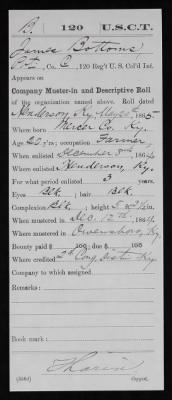 B. 120 U.S.C.T.
James Bottoms
Pvt., Co. C, 120 Reg't U. S. Col'd Inf.
Appears on
Company Muster-in and Descriptive Roll
of the organization named above. Roll dated
Henderson, Ky, 1865
Where born Mercer Co. Ky.
Age 20 y'rs; occupation Farmer
When enlisted December 1864
Where enlisted Henderson, Ky.
For what period enlisted 3 years.
Eyes Blk.; hair Blk.
Complexion Blk; height 5 ft. in.
When mustered in Dec. 12th, 1864
Where mustered in Owensboro, Ky
Bounty paid $ 100; due $ 100
Where credited 2d Cong. Dist. Ky
Company to which assigned
Remarks:
Book mark:
Copyist.